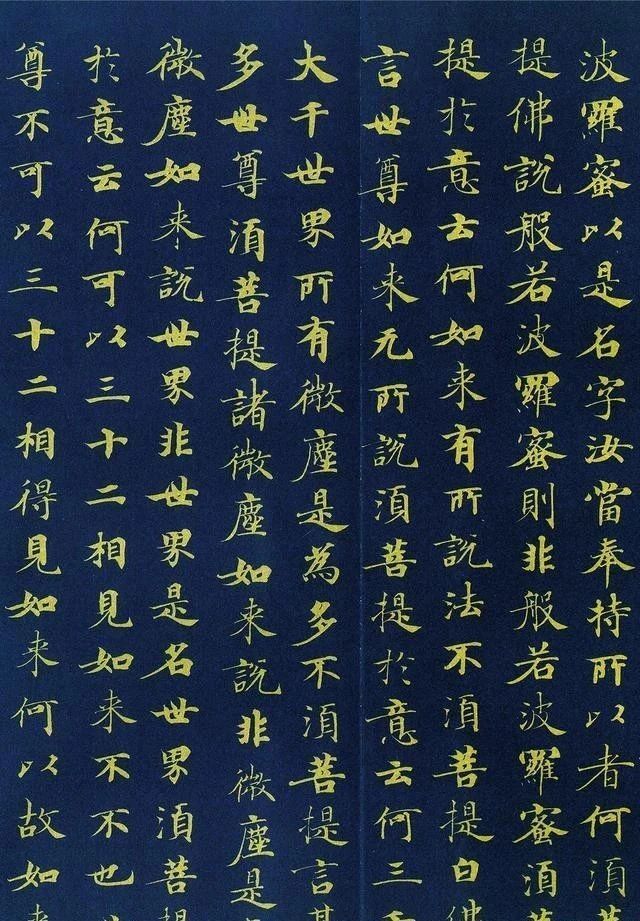 波羅蜜以是名字汝當奉持所以者何須菩
提佛說般若波羅蜜則非般若波羅蜜須菩
提於意云何如来有所說法不須菩提白佛
言世尊如来无所說須菩提於意云何三千
大千世界所有微塵是為多不須菩提言甚
多世尊須菩提諸微塵如来說非微塵是
微塵如来說世界非世界是名世界須菩提
於意云何可以三十二相見如来不不也
尊不可以三十二相得見如来何以故如来